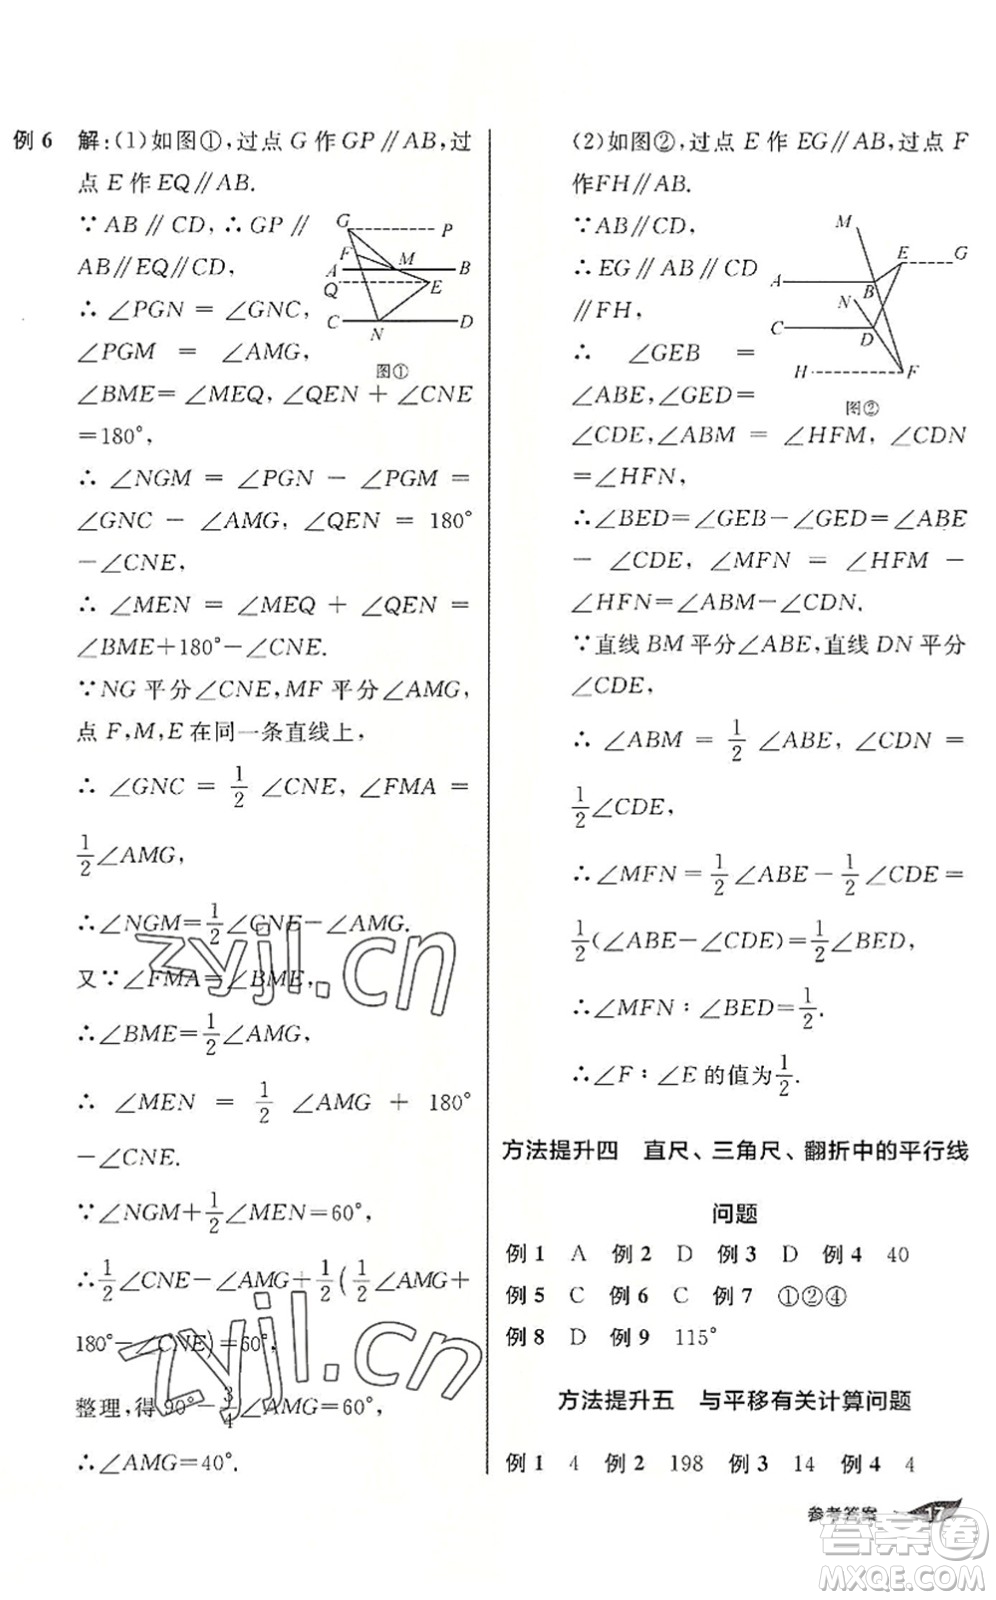 例 6 解:(1)如图①,过点 G 作 GP∥AB,过
点 E 作 EQ∥AB.
∵AB∥CD,∴GP∥
AB∥EQ∥CD,
∴∠PGN = ∠GNC,
∠PGM = ∠AMG,
∠BME = ∠MEQ, ∠QEN + ∠CNE
=180°,
∴ ∠NGM = ∠PGN - ∠PGM =
∠GNC - ∠AMG, ∠QEN = 180°
-∠CNE,
∴ ∠MEN = ∠MEQ + ∠QEN =
∠BME+180°-∠CNE.
∵NG 平分∠CNE,MF 平分∠AMG,
点 F,M,E 在同一条直线上,
∴ ∠GNC = 1/2 ∠CNE, ∠FMA =
1/2∠AMG,
∴∠NGM=1/2∠CNE-∠AMG.
又∵∠FMA=∠BME,
∴∠BME=1/2∠AMG,
∴ ∠MEN = 1/2 ∠AMG + 180° -
∠CNE.
∵∠NGM+1/2∠MEN=60°,
∴1/2∠CNE-∠AMG+1/2(1/2∠AMG+
180°-∠CNE)=60°,
整理,得 90°-3/4∠AMG=60°,
∴∠AMG=40°.
G P
F
A M B
Q E
C N D
图①
(2)如图②,过点 E 作 EG∥AB,过点 F
作FH∥AB.
∵AB∥CD,
∴EG∥AB∥CD
∥FH,
∴ ∠GEB =
∠ABE,∠GED=
∠CDE,∠ABM = ∠HFM, ∠CDN
=∠HFN,
∴∠BED=∠GEB-∠GED=∠ABE
- ∠CDE, ∠MFN = ∠HFM -
∠HFN=∠ABM-∠CDN.
∵直线 BM 平分∠ABE,直线 DN 平分
∠CDE,
∴ ∠ABM = 1/2 ∠ABE, ∠CDN =
1/2∠CDE,
∴∠MFN = 1/2 ∠ABE - 1/2 ∠CDE =
1/2(∠ABE-∠CDE)=1/2∠BED,
∴∠MFN∶∠BED=1/2.
∴∠F∶∠E 的值为1/2.
M
E G
A B
N
C D
H F
图②
方法提升四 直尺、三角尺、翻折中的平行线
问题
例 1 A 例 2 D 例 3 D 例 4 40
例 5 C 例 6 C 例 7 ①②④
例 8 D 例 9 115°
方法提升五 与平移有关计算问题
例 1 4 例 2 198 例 3 14 例 4 4
参考答案 17
zyjl.cn
zyjl.cn
答案卷
MXQE.COM